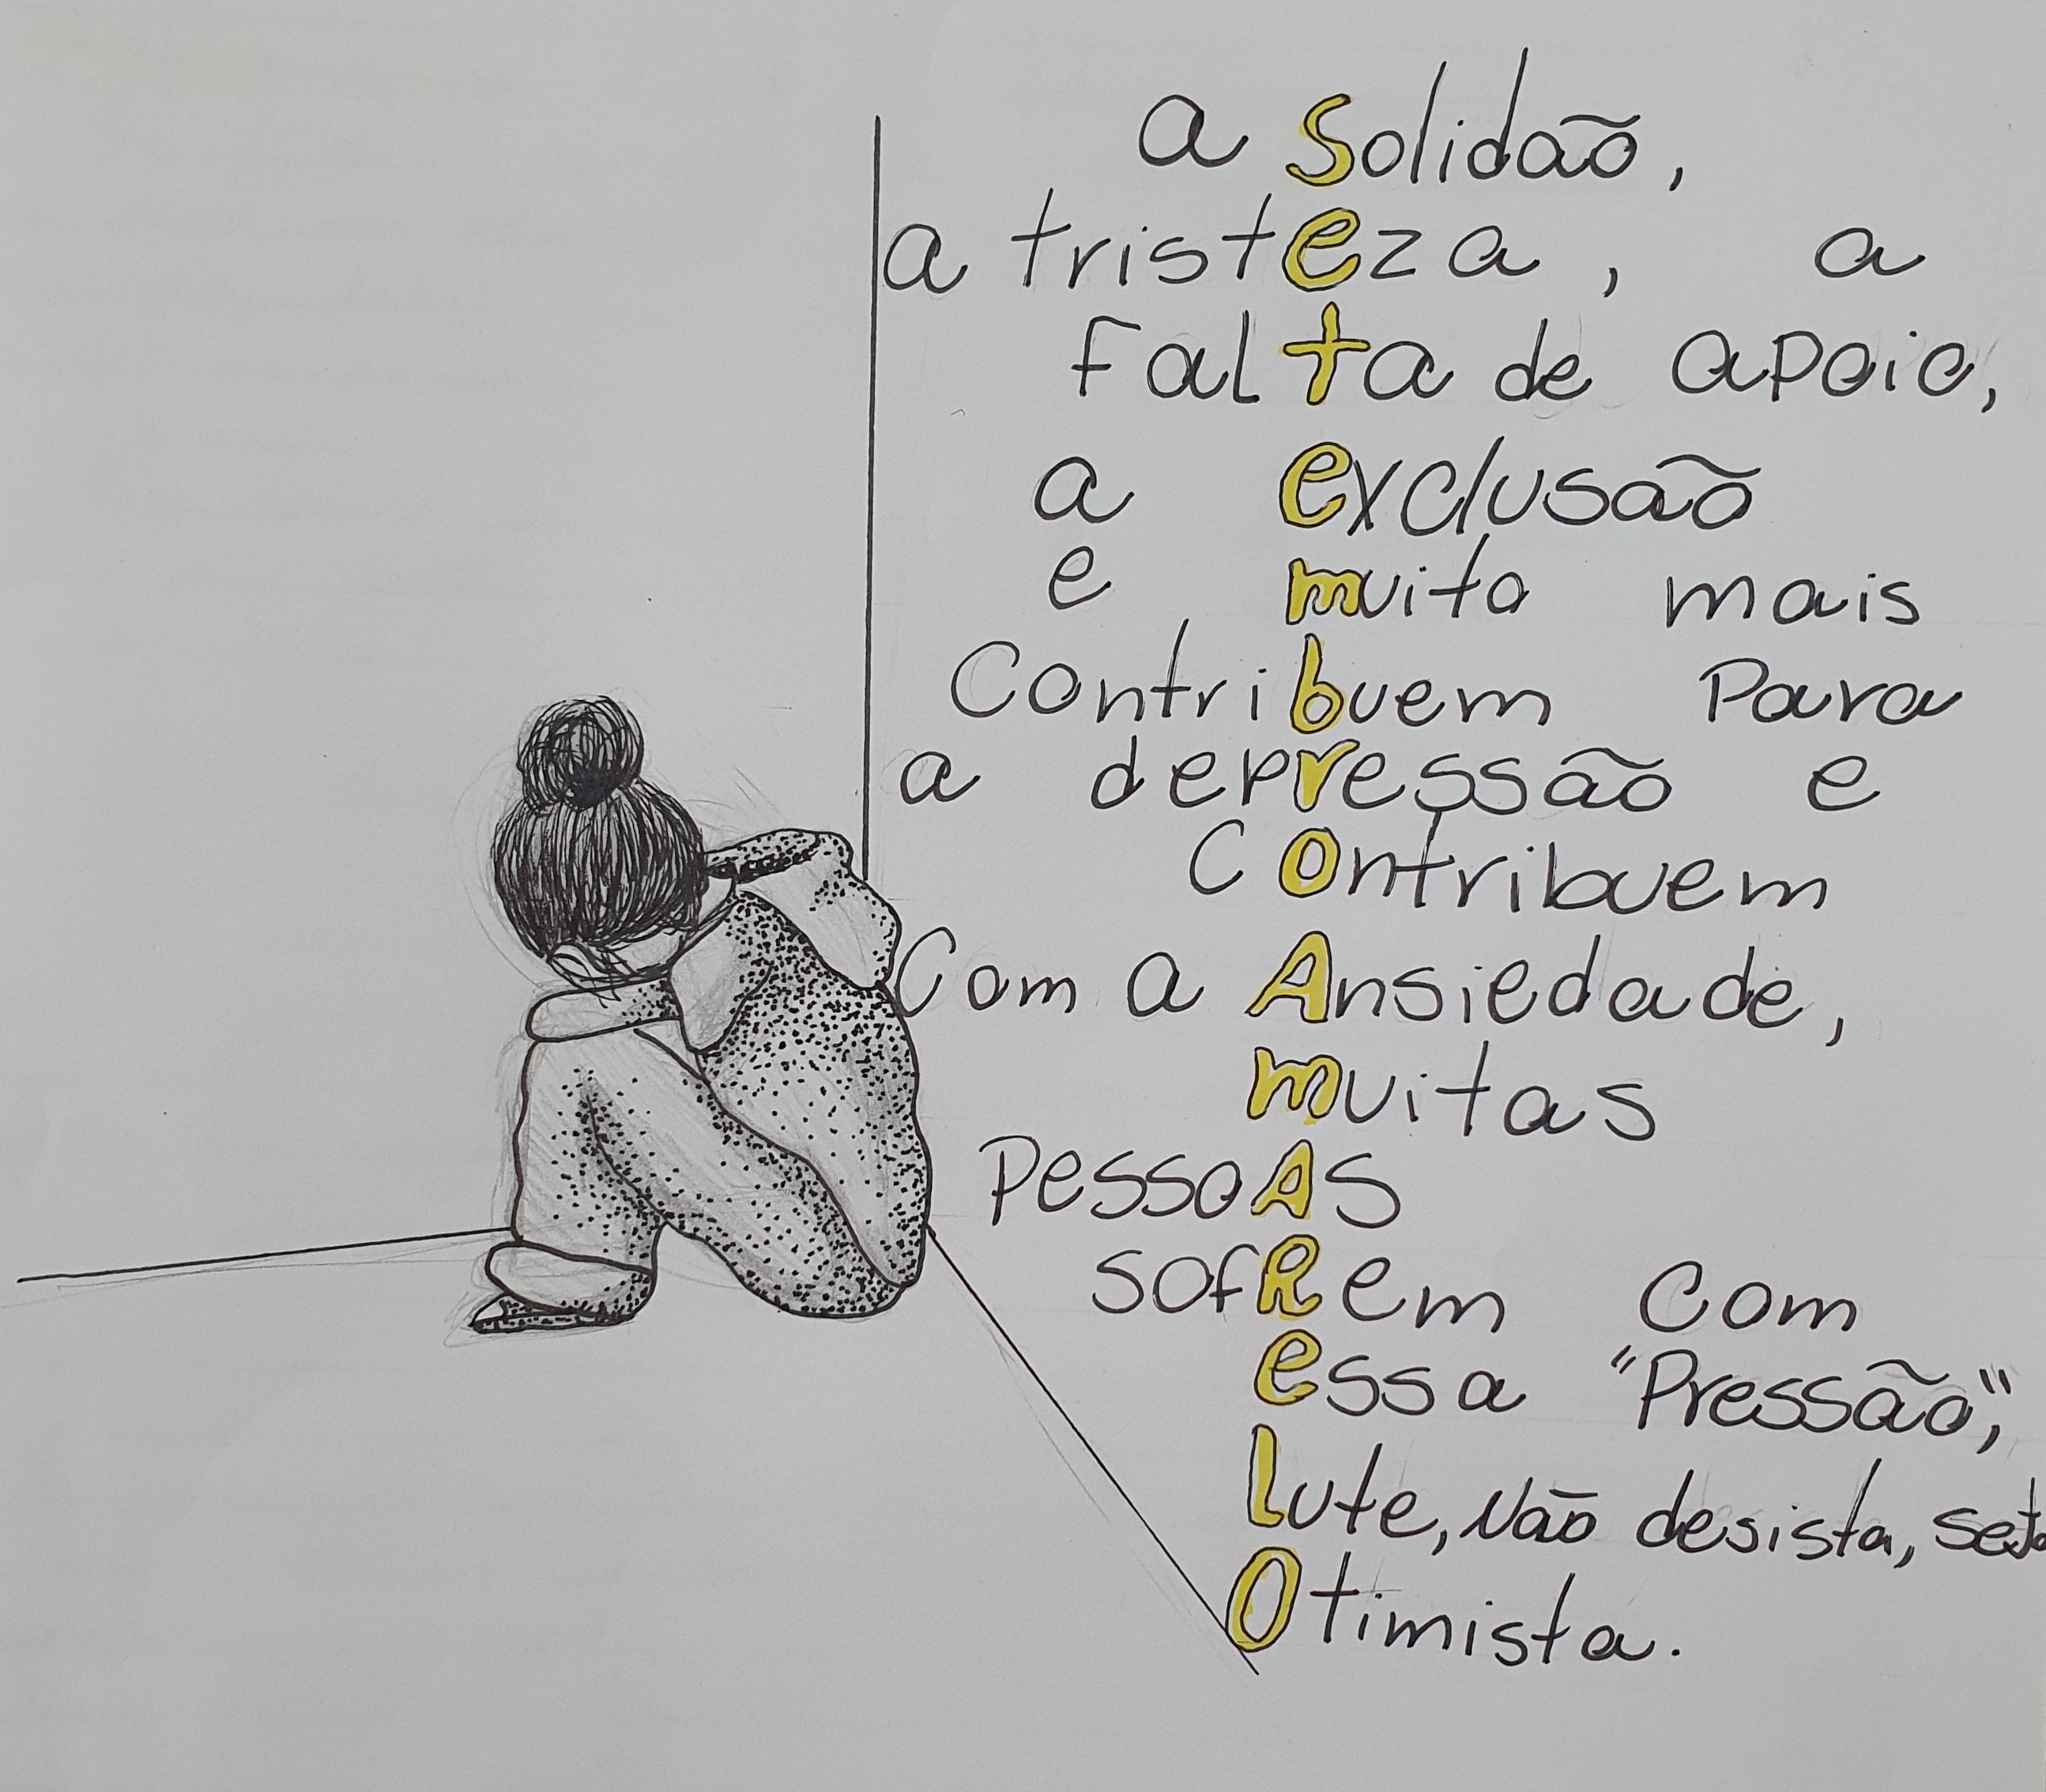 a solidão,
a tristeza, a
Falta de apoio,
a exclusão
e muito mais
Contribuem Para
a depressão e
Contribuem
Com a Ansiedade,
muitas
PessoAs
sofRem Com
essa "Pressão,"
Lute, Não desista, seja
Otimista.